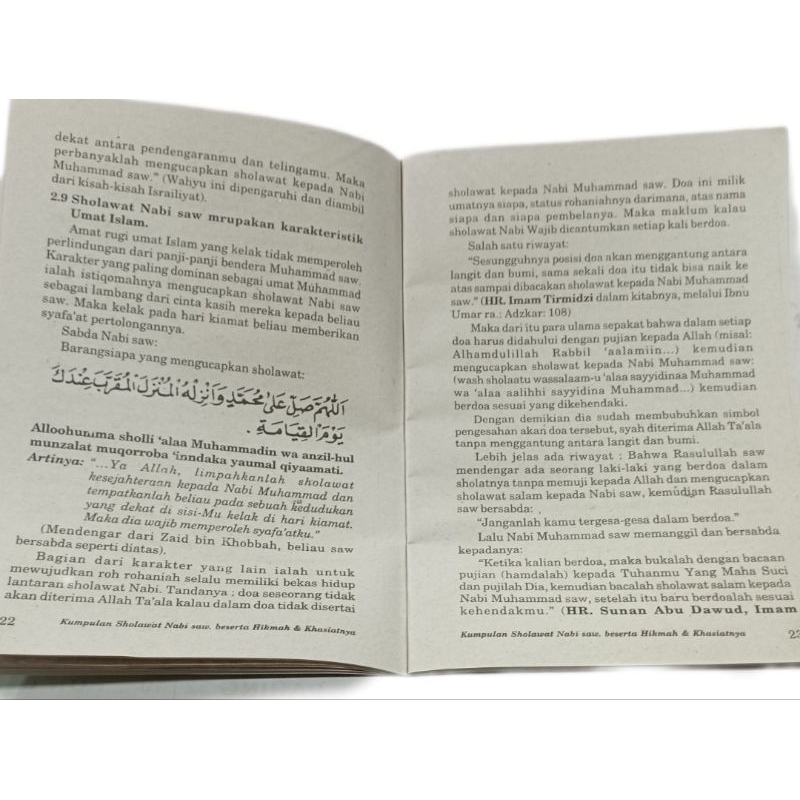 dekat antara pendengaranmu dan telingamu. Maka
perbanyaklah mengucapkan sholawat kepada Nabi
Muhammad saw." (Wahyu ini dipengaruhi dan diambil
dari kisah-kisah Israiliyat).
2.9 Sholawat Nabi saw mrupakan karakteristik
Umat Islam.
Amat rugi umat Islam yang kelak tidak memperoleh
perlindungan dari panji-panji bendera Muhammad saw.
Karakter yang paling dominan sebagai umat Muhammad
ialah istiqomahnya mengucapkan sholawat Nabi saw
sebagai lambang dari cinta kasih mereka kepada beliau
saw. Maka kelak pada hari kiamat beliau memberikan
syafa'at pertolongannya.
Sabda Nabi saw:
Barangsiapa yang mengucapkan sholawat:
اَللّٰهُمَّ صَلِّ عَلٰى مُحَمَّدٍ وَاَنْزِلْهُ الْمُنْزَلَ الْمُقَرَّبَ عِنْدَكَ
يَوْمَ الْقِيَامَةِ .
Alloohumma sholli 'alaa Muhammadin wa anzil-hul
munzalat muqorroba 'inndaka yaumal qiyaamati.
Artinya: "...Ya Allah, limpahkanlah sholawat
kesejahteraan kepada Nabi Muhammad dan
tempatkanlah beliau pada sebuah kedudukan
yang dekat di sisi-Mu kelak di hari kiamat.
Maka dia wajib memperoleh syafa'atku."
(Mendengar dari Zaid bin Khobbah, beliau saw
bersabda seperti diatas).
Bagian dari karakter yang lain ialah untuk
mewujudkan roh rohaniah selalu memiliki bekas hidup
lantaran sholawat Nabi. Tandanya ; doa seseorang tidak
akan diterima Allah Ta'ala kalau dalam doa tidak disertai
22 Kumpulan Sholawat Nabi saw. beserta Hikmah & Khasiatnya
sholawat kepada Nabi Muhammad saw. Doa ini milik
umatnya siapa, status rohaniahnya darimana, atas nama
siapa dan siapa pembelanya. Maka maklum kalau
sholawat Nabi Wajib dicantumkan setiap kali berdoa.
Salah satu riwayat:
"Sesungguhnya posisi doa akan menggantung antara
langit dan bumi, sama sekali doa itu tidak bisa naik ke
atas sampai dibacakan sholawat kepada Nabi Muhammad
saw." (HR. Imam Tirmidzi dalam kitabnya, melalui Ibnu
Umar ra.: Adzkar: 108)
Maka dari itu para ulama sepakat bahwa dalam setiap
doa harus didahului dengan pujian kepada Allah (misal:
Alhamdulillah Rabbil 'aalamiin...) kemudian
mengucapkan sholawat kepada Nabi Muhammad saw:
(wash sholaatu wassalaam-u 'alaa sayyidinaa Muhammad
wa 'alaa aalihhi sayyidina Muhammad...) kemudian
berdoa sesuai yang dikehendaki.
Dengan demikian dia sudah membubuhkan simbol
pengesahan akan doa tersebut, syah diterima Allah Ta'ala
tanpa menggantung antara langit dan bumi.
Lebih jelas ada riwayat : Bahwa Rasulullah saw
mendengar ada seorang laki-laki yang berdoa dalam
sholatnya tanpa memuji kepada Allah dan mengucapkan
sholawat salam kepada Nabi saw, kemudian Rasulullah
saw bersabda:
"Janganlah kamu tergesa-gesa dalam berdoa."
Lalu Nabi Muhammad saw memanggil dan bersabda
kepadanya:
"Ketika kalian berdoa, maka bukalah dengan bacaan
pujian (hamdalah) kepada Tuhanmu Yang Maha Suci
dan pujilah Dia, kemudian bacalah sholawat salam kepada
Nabi Muhammad saw, setelah itu baru berdoalah sesuai
kehendakmu." (HR. Sunan Abu Dawud, Imam
Kumpulan Sholawat Nabi saw. beserta Hikmah & Khasiatnya 23